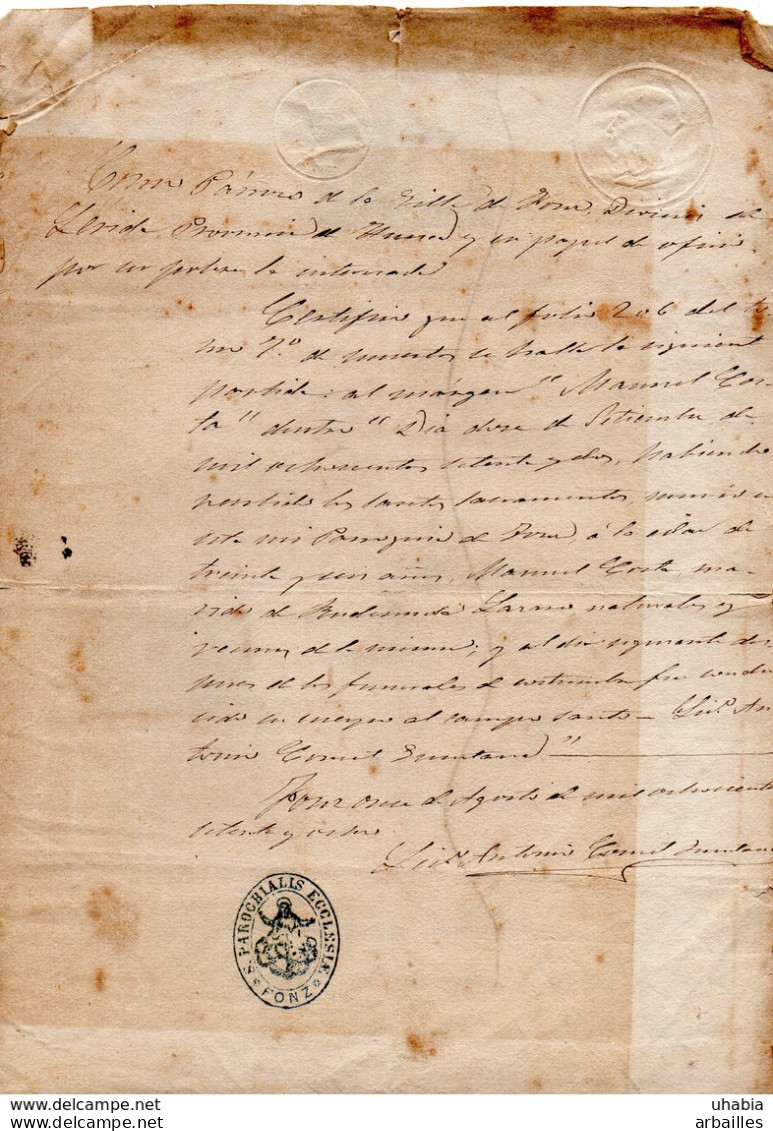 Como Párroco de la Villa de Fonz, Diócesis de
Lérida Provincia de Huesca y en papel de oficio
por ser pobre la interesada
Certifico que al folio 206 del to-
mo 7.º de muertos se halla la siguiente
partida: al márgen "Manuel Cos-
ta" dentro "Dia doce de Setiembre de
mil ochocientos setenta y dos, habiendo
recibido los santos sacramentos, murió en
esta mi Parroquia de Fonz, á la edad de
treinta y seis años, Manuel Costa, ma-
rido de Rudesinda naturales y
vecinos de la misma; y al dia siguiente des-
pues de los funerales de costumbre fue condu-
cido su cuerpo al campo santo – Lic.º An-
tonio Comet Zuentana"
Fonz once de Agosto de mil ochocientos
setenta y ocho
Lic.º Antonio
S. PAROCHIALIS ECCLESIÆ
* FONZ *
uhabia
arbailles
Delcampe.net